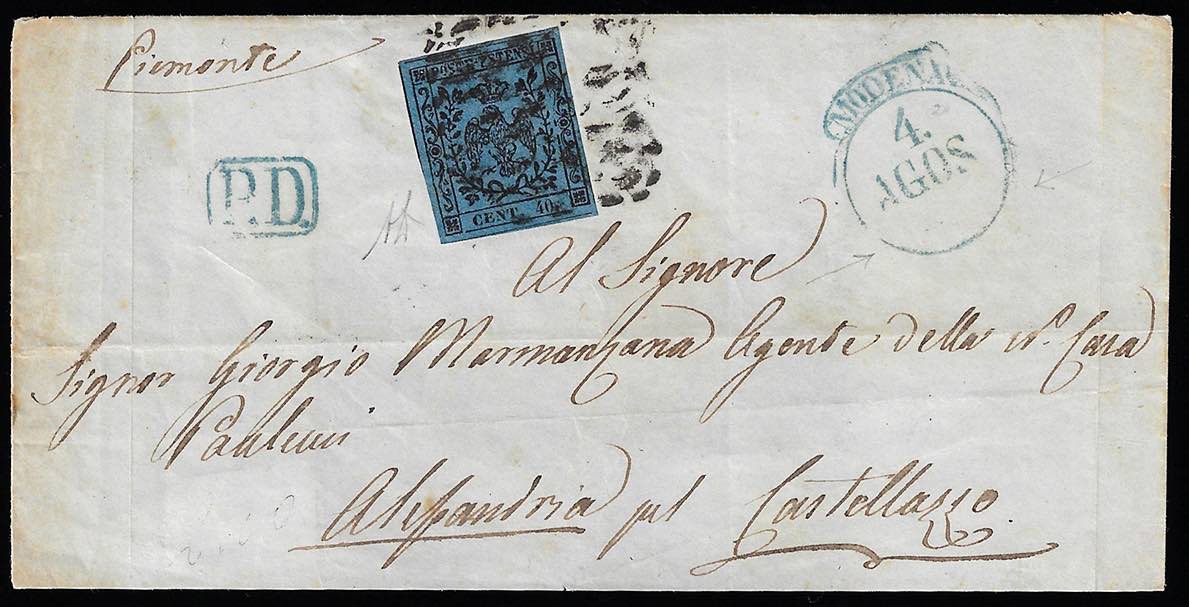 Piemonte
POSTE ESTENSI
CENT. 40.
MODENA
4.
AGOS
P.D.
Al Signore
Signor Giorgio Marmanzana Agente della Nl. Casa
Paulucci
Alessandria pel Castellazzo